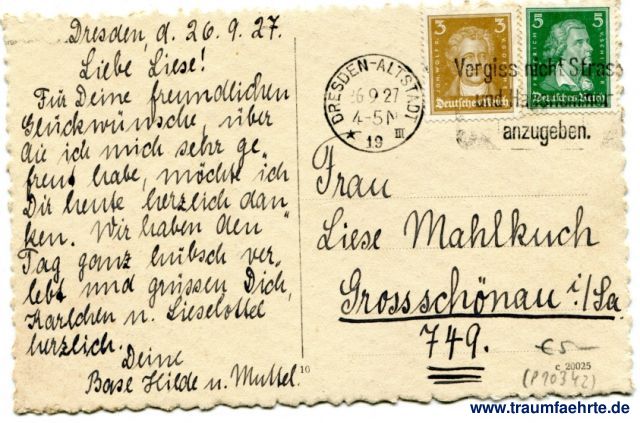 Dresden, d. 26.9.27.
Liebe Liese!
Für Deine freundlichen
Glückwünsche, über
die ich mich sehr ge-
freut habe, möchte ich
Dir heute herzlich dan-
ken. Wir haben den
Tag ganz hübsch ver-
lebt und grüssen Dich,
Karlchen u. Lieselottel
herzlich.
Deine
Base Hilde u. Muttel.
DRESDEN-ALTSTADT
26.9.27
4-5 N
* 19 III
3 3
Deutsches Reich
5 5
Deutsches Reich
Vergiss nicht Strass
anzugeben.
Frau
Liese Mahlkuch
Grossschönau i/Sa
749.
10
€ 5-
c 20025
(P10342)
www.traumfaehrte.de